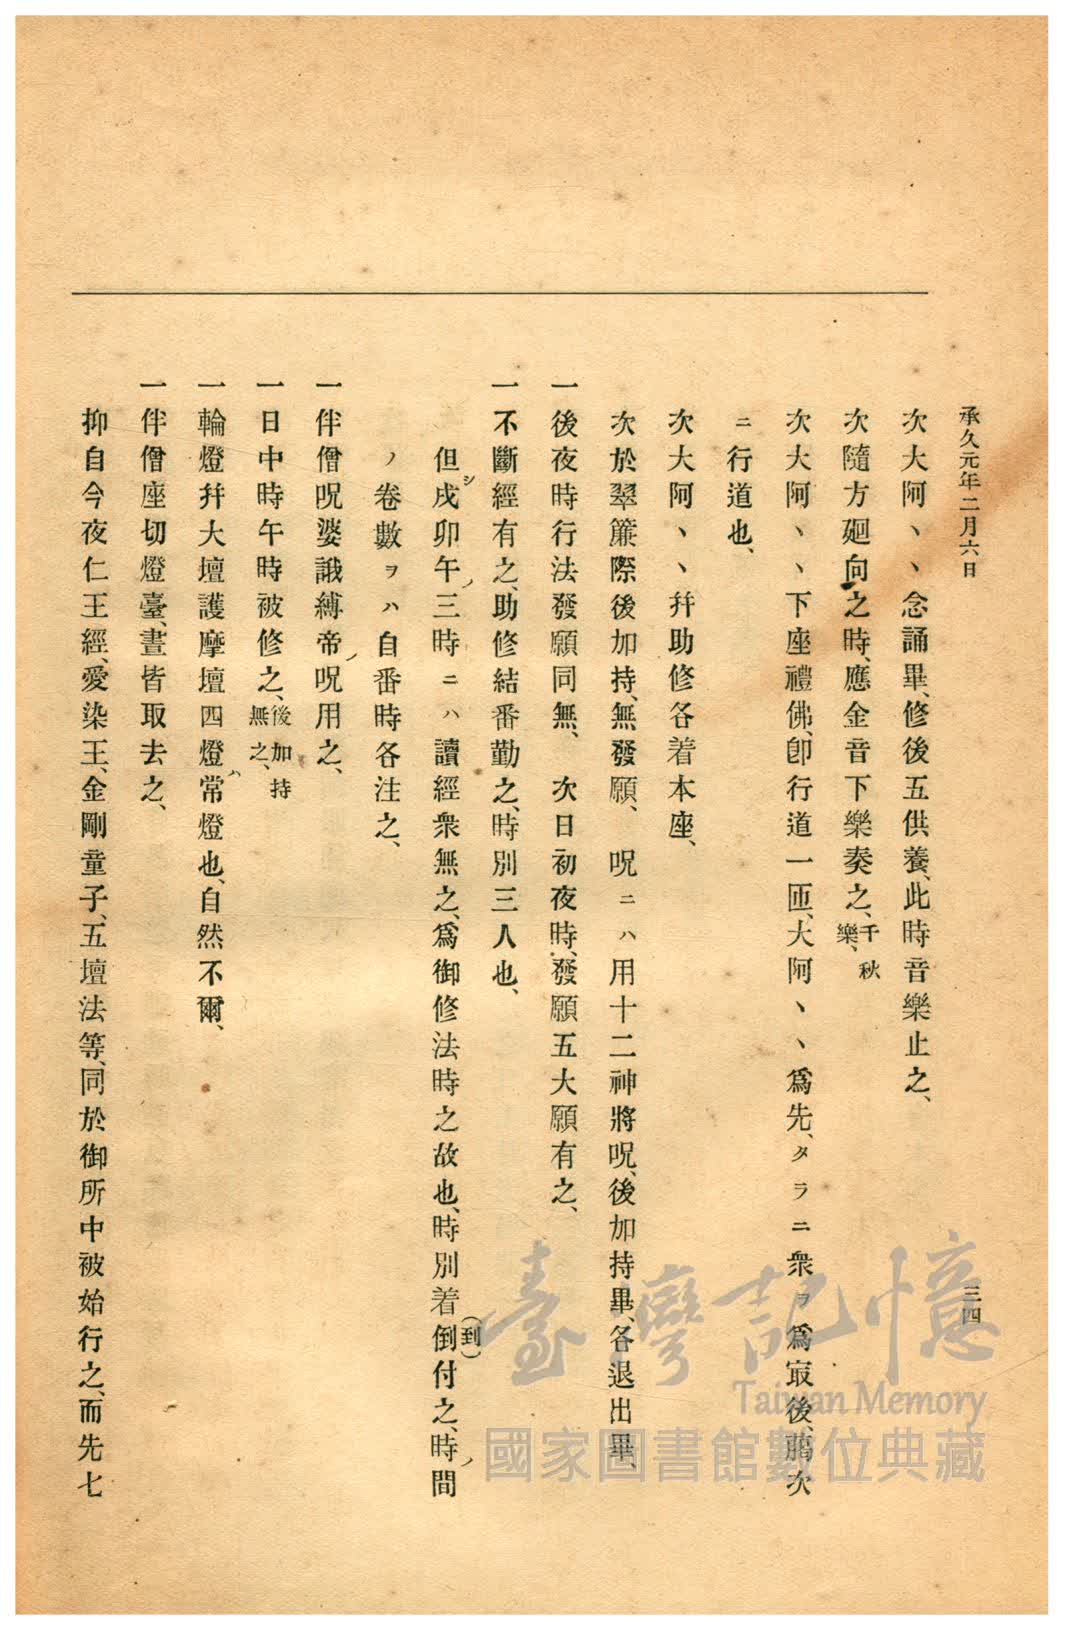 承久元年二月六日
三四
次大阿丶丶念誦畢、修後五供養、此時音樂止之、
次隨方廻向之時、應金音下樂奏之、千秋樂、
次大阿丶丶下座禮佛、卽行道一匝、大阿丶丶爲先、タラニ衆ヲ爲㝡後、﨟次
ニ行道也、
次大阿丶丶幷助修各着本座、
次於翠簾際後加持、無發願、　呪ニハ用十二神將呪、後加持畢、各退出畢、
一後夜時行法發願同無、　次日初夜時、發願五大願有之、
一不斷經有之、助修結番勤之、時別三人也、
但シ戌卯午ノ三時ニハ讀經衆無之、爲御修法時之故也、時別着倒(到)付之、時ノ間
ノ卷數ヲハ自番時各注之、
一伴僧呪婆誐縛帝ノ呪用之、
一日中時午時被修之、後加持無之、
一輪燈幷大壇護摩壇四燈ハ常燈也、自然不爾、
一伴僧座切燈臺、晝皆取去之、
抑自今夜仁王經、愛染王、金剛童子、五壇法等、同於御所中被始行之、而先七
臺灣記憶
Taiwan Memory
國家圖書館數位典藏